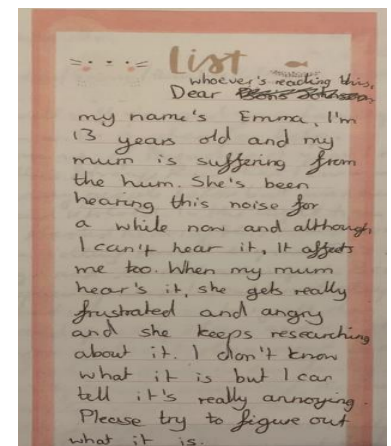 List
whoever's reading this,
Dear Boris Johnson
my name's Emma, I'm
13 years old and my
mum is suffering from
the hum. She's been
hearing this noise for
a while now and although
I can't hear it, It affects
me too. When my mum
hear's it, she gets really
frustrated and angry
and she keeps researching
about it. I don't know
what it is but I can
tell it's really annoying.
Please try to figure out
what it is.